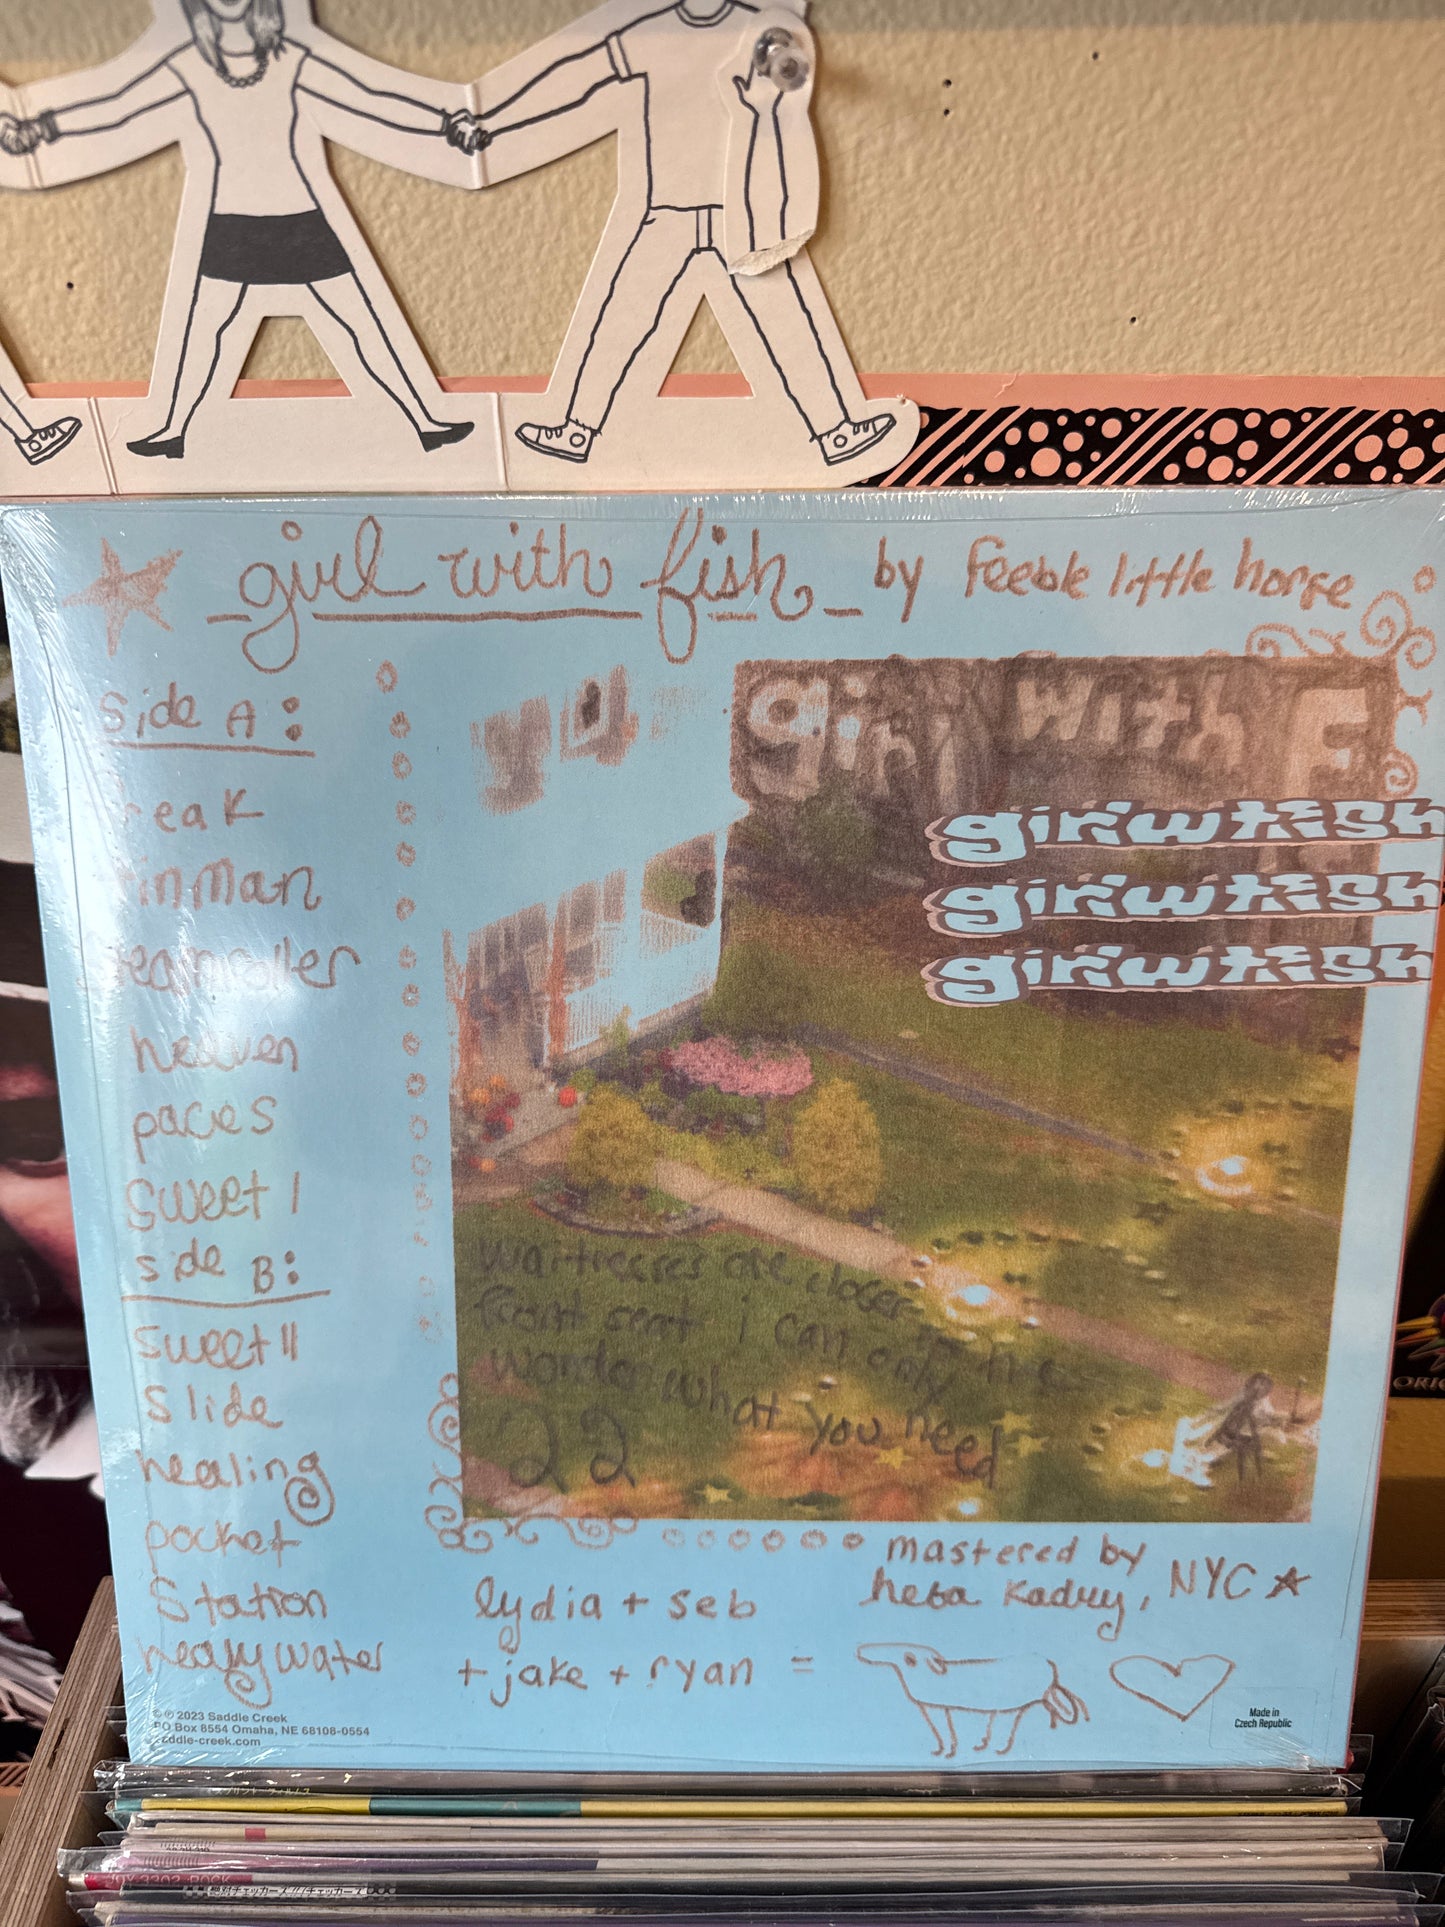 girl with fish by feeble little horse
side A:
freak
tin man
steamroller
heaven
paces
sweet I
side B:
sweet II
slide
healing
pocket
station
heavy water
girl with F
girlwfish
girlwfish
girlwfish
waitresses are closer to the
front seat i can only
wonder what you need
22
mastered by
heba Kadry, NYC
lydia + seb
+ jake + ryan =
℗ © 2023 Saddle Creek
PO Box 8554 Omaha, NE 68108-0554
saddle-creek.com
Made in
Czech Republic